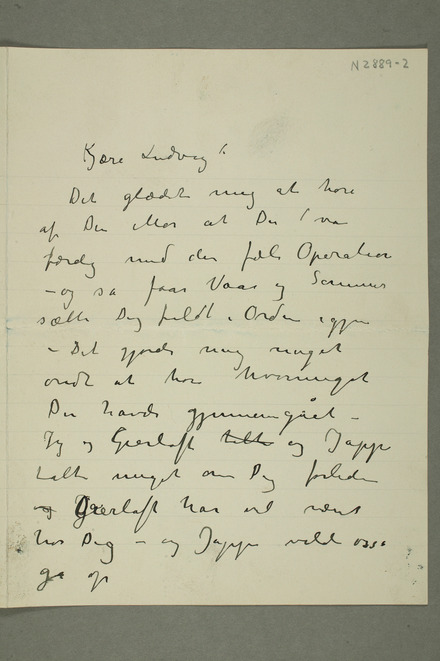 N 2889-2
Kjære Ludvig!
Det glædet mig at høre
af Din Mor at Du var
færdig med den fæle Operation
– og så faar Vaar og Sommer
sætte Dig fuldt i Orden igjen
– Det gjorde mig meget
ondt at høre hvormeget
Du havde gjennemgået –
Jeg og Gierløff talte og Jappe
talte meget om Dig forleden
og Gierløff har vel været
hos Dig – og Jappe vilde også
gå op